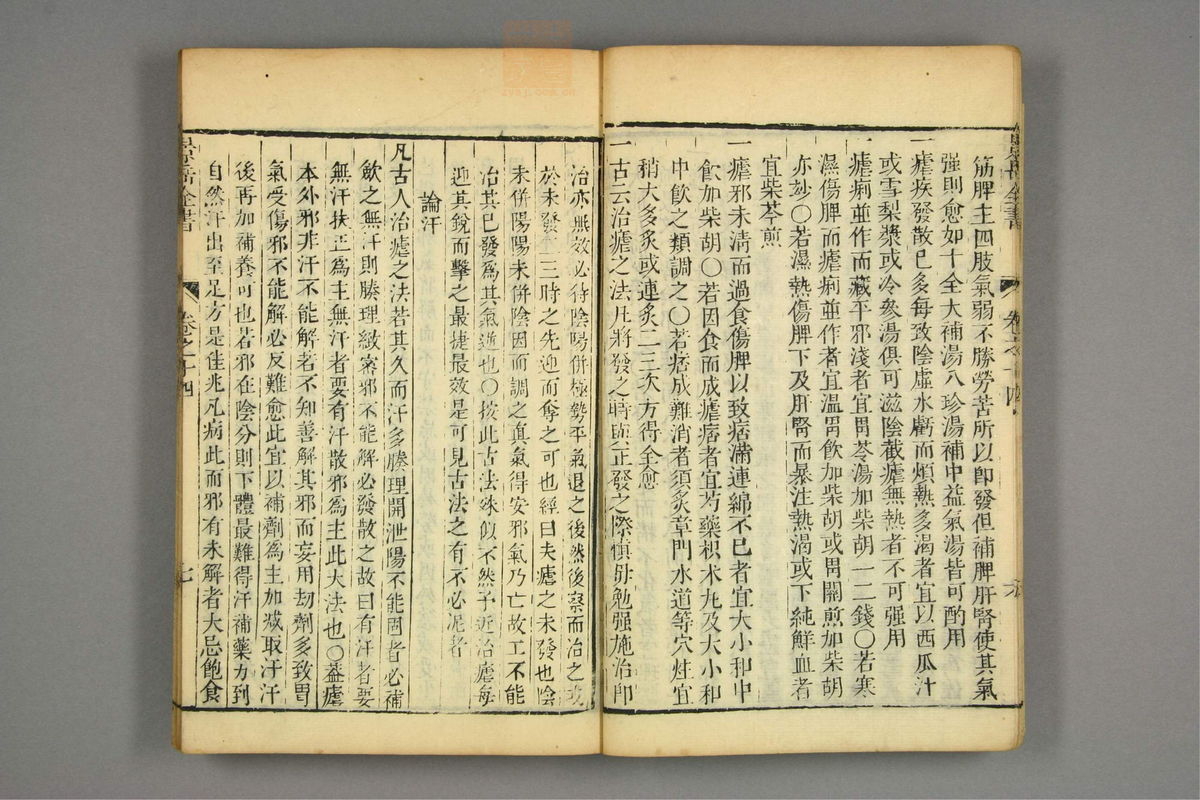 筋脾主四肢氣弱不勝勞苦所以即發但補脾肝腎使其氣
強則愈如十全大補湯八珍湯補中益氣湯皆可酌用
一瘧疾發散已多每致陰虛水虧而煩熱多渴者宜以西瓜汁
或雪梨漿或冷參湯俱可滋陰截瘧無熱者不可强用
一瘧痢並作而臟平邪淺者宜胃苓湯加柴胡一二錢○若寒
濕傷脾而瘧痢並作者宜温胃飲加柴胡或胃關煎加柴胡
亦妙○若濕熱傷脾下及肝腎而暴注熱渴或下純鮮血者
宜柴苓煎
一瘧邪未清而過食傷脾以致痞滿連綿不已者宜大小和中
飲加柴胡○若因食而成瘧痞者宜芍藥枳朮丸及大小和
中飲之類調之○若痞成難消者須炙章門水道等穴炷宜
稍大多炙或連炙二三次方得全愈
一古云治瘧之法凡將發之時與正發之際慎毋勉强施治即
治亦無效必待陰陽併極勢平氣退之後然後察而治之或
於未發二三時之先迎而奪之可也經曰夫瘧之未發也陰
未併陽陽未併陰因而調之眞氣得安邪氣乃亡故工不能
治其已發爲其氣逆也○按此古法殊似不然予近治瘧每
迎其銳而擊之最捷最效是可見古法之有不必泥者
論汗
凡古人治瘧之法若其久而汗多腠理開泄陽不能固者必補
歛之無汗則腠理緻密邪不能解必發散之故曰有汗者要
無汗扶正爲主無汗者要有汗散邪爲主此大法也○葢瘧
本外邪非汗不能解若不知善解其邪而妄用刧劑多致胃
氣受傷邪不能解必反難愈此宜以補劑爲主加减取汗汗
後再加補養可也若邪在陰分則下體最難得汗補藥力到
自然汗出至足方是佳兆凡病此而邪有未解者大忌飽食
景岳全書
卷之十四
七